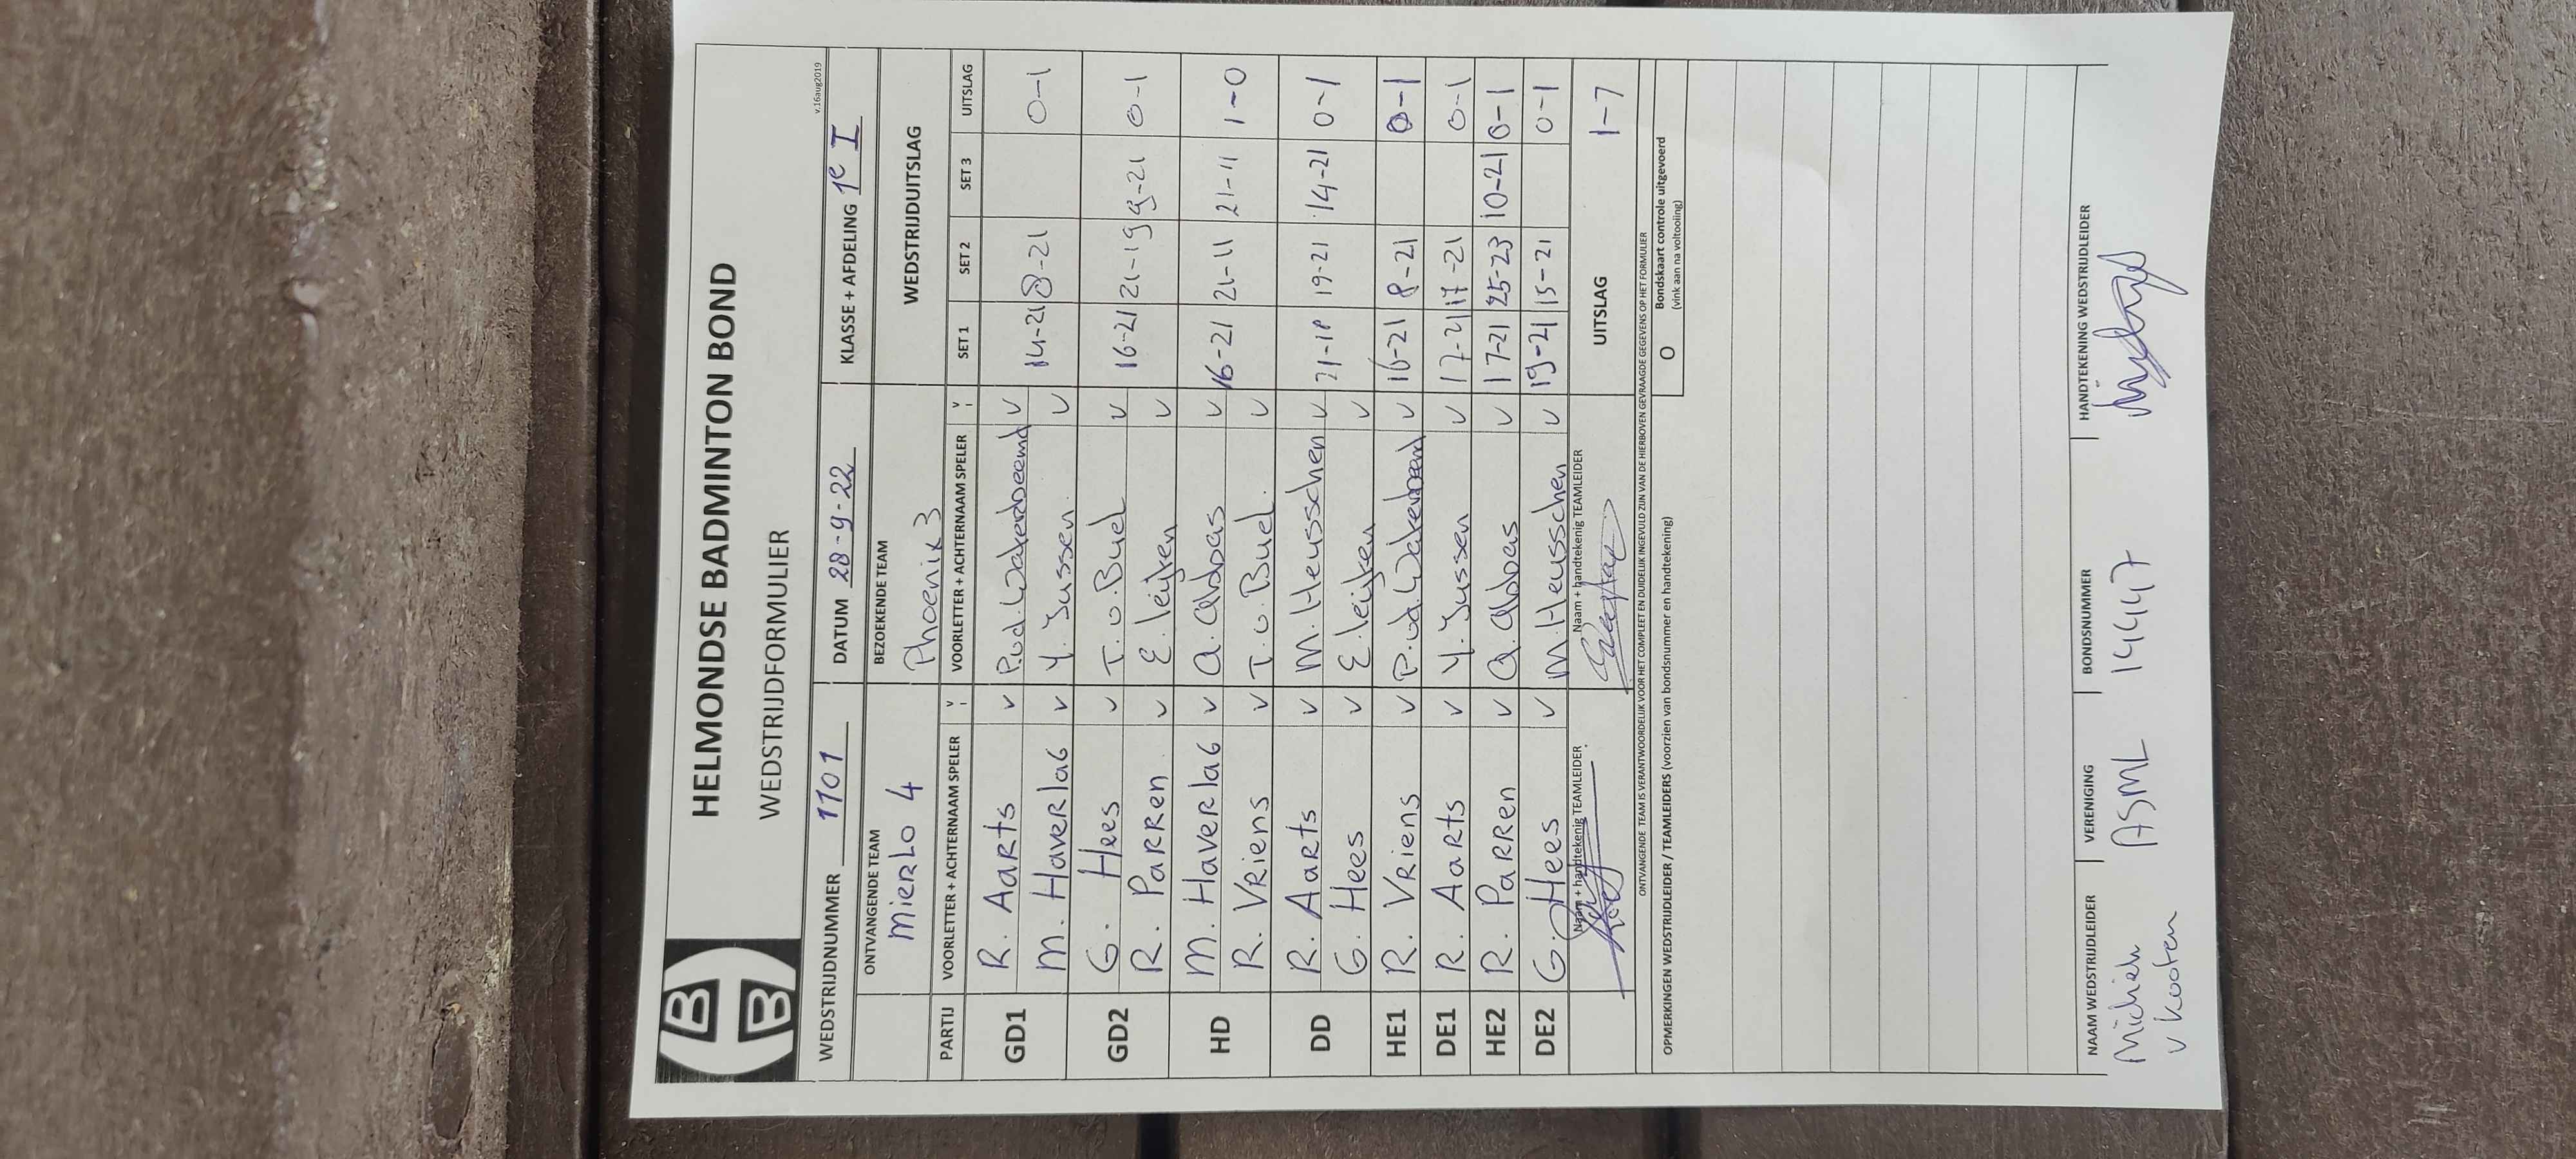 HELMONDSE BADMINTON BOND
WEDSTRIJDFORMULIER
v.16aug2019
WEDSTRIJDNUMMER 1101 DATUM 28-9-22 KLASSE + AFDELING 1e I
ONTVANGENDE TEAM BEZOEKENDE TEAM WEDSTRIJDUITSLAG
MIERLO 4 Phoenix 3
PARTIJ VOORLETTER + ACHTERNAAM SPELER V VOORLETTER + ACHTERNAAM SPELER V SET 1 SET 2 SET 3 UITSLAG
GD1 R. Aarts v P.v.d. Wakerbeemd v 14-21 8-21 0-1
M. Haverlag v Y. Jussen. v
GD2 G. Hees v T.v. Buel v 16-21 21-19 9-21 0-1
R. Parren v E. Leijten v
HD M. Haverlag v A. Abbas v 16-21 21-11 21-11 1-0
R. Vriens v T.v. Buel. v
DD R. Aarts v M. Heusschen v 21-18 19-21 14-21 0-1
G. Hees v E. Leijten v
HE1 R. Vriens v P.v.d. v 16-21 8-21 0-1
DE1 R. Aarts v Y. Jussen v 17-21 17-21 0-1
HE2 R. Parren v A. Abbas v 17-21 25-23 10-21 0-1
DE2 G. Hees v M Heusschen v 19-21 15-21 0-1
Naam + handtekenig TEAMLEIDER Naam + handtekenig TEAMLEIDER UITSLAG 1-7
ONTVANGENDE TEAM IS VERANTWOORDELIJK VOOR HET COMPLEET EN DUIDELIJK INGEVULD ZIJN VAN DE HIERBOVEN GEVRAAGDE GEGEVENS OP HET FORMULIER
OPMERKINGEN WEDSTRIJDLEIDER / TEAMLEIDERS (voorzien van bondsnummer en handtekening) O Bondskaart controle uitgevoerd
(vink aan na voltooiing)
NAAM WEDSTRIJDLEIDER VERENIGING BONDSNUMMER HANDTEKENING WEDSTRIJDLEIDER
Michiel ASML 14447
v Kooten